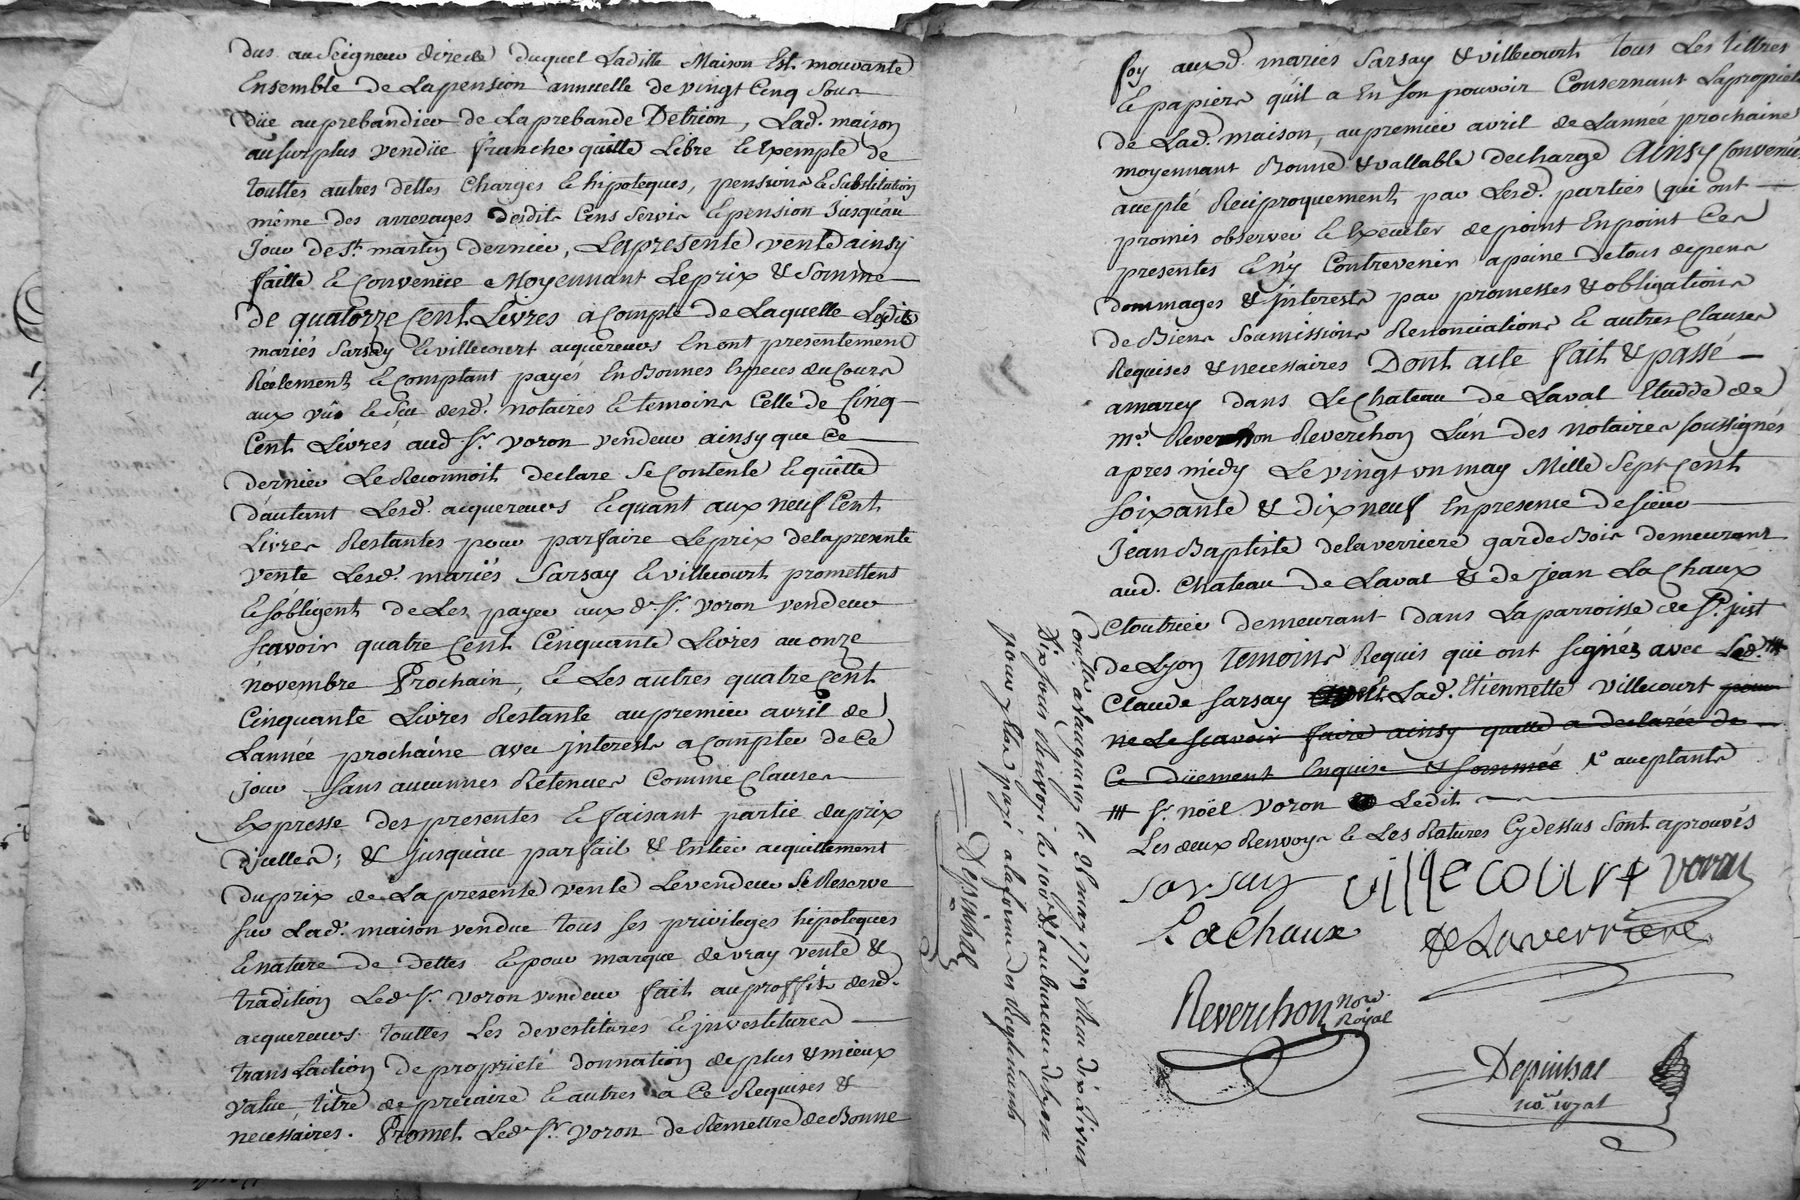 dus au Seigneur directe duquel Laditte Maison Est mouvante
Ensemble de La pension annuelle de vingt Cinq Sous
düe au prebandier de La prebande Detrion, Lad. maison
au surplus vendüe franche quitte Libre & Exempte de
touttes autres dettes Charges & hipoteques, pensions & Substitution
même des arrerages desdits Cens Servis & pension Jusqu'au
Jour de St. martin dernier, La presente vente ainsy
faitte & Convenüe Moyennant Le prix & Somme
de quatorze Cent Livres a Compte de Laquelle Lesdits
mariés Sarsay & villecourt acquereurs En ont presentement
Réelement & Comptant payés En Bonnes Especes du Cours
aux vûs & Sçu desd. notaires & temoins Celle de Cinq
Cent Livres aud Sr. voron vendeur ainsy que Ce
dernier Le Reconnoit declare Se Contente & quitte
d'autant Lesd. acquereurs & quant aux neuf Cent
Livres Restantes pour parfaire Le prix de la presente
vente Lesd. mariés Sarsay & villecourt promettent
& s'obligent de Les payer aux d. Sr. voron vendeur
Scavoir quatre Cent Cinquante Livres au onze
novembre Prochain, & Les autres quatre Cent
Cinquante Livres Restante au premier avril de
L'année prochaine avec interests a Compter de Ce
jour Sans aucunnes Retenues Comme Clauses
Expresse des presentes & faisant partie du prix
d'jcelles; & jusqu'au parfait & Entier acquittement
du prix de La presente vente Le vendeur Se Reserve
sur Lad. maison vendue tous ses privileges hipoteques
& nature de dettes & pour marque de vray vente &
tradition Led. Sr. voron vendeur fait au proffit desd.
acquereurs touttes Les devestitures & jnvestitures
translaction de proprieté donnation de plus & mieux
value, titre de precaire & autres a Ce Requises &
necessaires. Promet Led. Sr. voron de Remettre de Bonne
foy aux d. mariés Sarsay & villecourt tous Les tittres
& papiers qu'il a En son pouvoir Consernant La proprieté
de Lad. maison, au premier avril de L'année prochaine
moyennant Bonne & vallable decharge Ainsy Convenu
accepté Réciproquement par Lesd. parties qui ont
promis observer & Executer de point En point Ces
presentes & n'y Contrevenir a peine de tous depens
dommages & jnterests par promesses & obligations
de Biens Soumissions Renonciations & autres Clauses
Requises & necessaires Dont acte fait & passé
a marcy dans Le Chateau de Laval Etudde de
me. Reverchon Reverchon L'un des notaires soussignés
apres midy Le vingt un may Mille Sept Cent
soixante & dix neuf En presence de sieur
Jean Baptiste delaverriere garde Bois demeurant
aud. Chateau de Laval & de Jean La Chaux
Cloutrier demeurant dans La parroisse de St. just
de Lyon temoins Requis qui ont signés avec Led. ///
Claude sarsay Lad. Etiennette villecourt pour
ne Le scavoir faire ainsy quelle a declarée de
Ce düement Enquise & sommée acceptante
/// Sr. noël voron Ledit
Les deux Renvoys & Les Ratures Cy dessus sont aprouvés
Sarsay villecourt voron
Lachaux delaverriere
Reverchon Nore Royal
Depinhal
nore royal
Conttrollé a le 28 may 1779 Reçu dix Livres
Dix sous Renvoyé le 100e dr. au bureau de Lyon
pour y être payé a la forme des Reglements
Depinhal